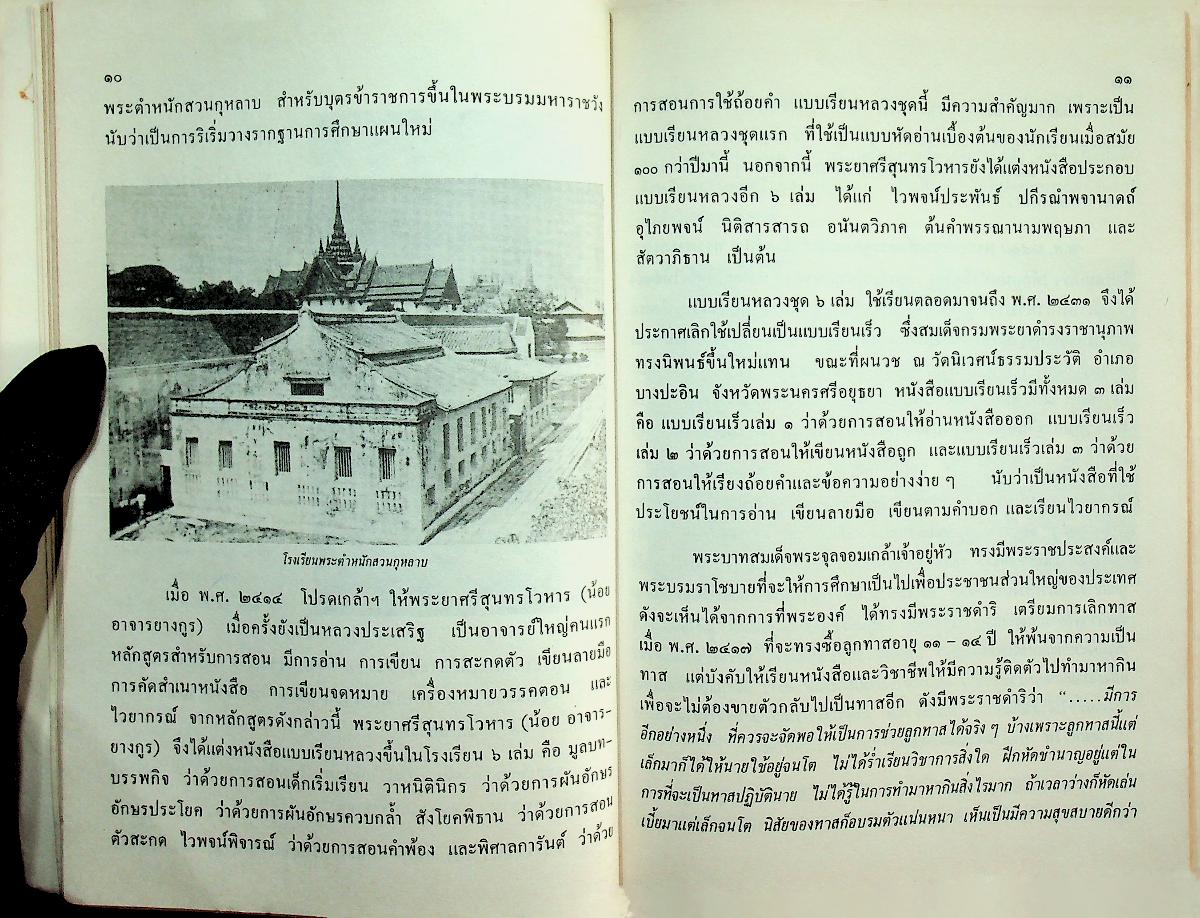 ๑๐
พระตำหนักสวนกุหลาบ สำหรับบุตรข้าราชการขึ้นในพระบรมมหาราชวัง
นับว่าเป็นการริเริ่มวางรากฐานการศึกษาแผนใหม่
โรงเรียนพระตำหนักสวนกุหลาบ
เมื่อ พ.ศ. ๒๔๑๔ โปรดเกล้าฯ ให้พระยาศรีสุนทรโวหาร (น้อย
อาจารยางกูร) เมื่อครั้งยังเป็นหลวงประเสริฐ เป็นอาจารย์ใหญ่คนแรก
หลักสูตรสำหรับการสอน มีการอ่าน การเขียน การสะกดตัว เขียนลายมือ
การคัดสำเนาหนังสือ การเขียนจดหมาย เครื่องหมายวรรคตอน และ
ไวยากรณ์ จากหลักสูตรดังกล่าวนี้ พระยาศรีสุนทรโวหาร (น้อย อาจาร-
ยางกูร) จึงได้แต่งหนังสือแบบเรียนหลวงขึ้นในโรงเรียน ๖ เล่ม คือ มูลบท-
บรรพกิจ ว่าด้วยการสอนเด็กเริ่มเรียน วาหนิตินิกร ว่าด้วยการผันอักษร
อักษรประโยค ว่าด้วยการผันอักษรควบกล้ำ สังโยคพิธาน ว่าด้วยการสอน
ตัวสะกด ไวพจน์พิจารณ์ ว่าด้วยการสอนคำพ้อง และพิศาลการันต์ ว่าด้วย
๑๑
การสอนการใช้ถ้อยคำ แบบเรียนหลวงชุดนี้ มีความสำคัญมาก เพราะเป็น
แบบเรียนหลวงชุดแรก ที่ใช้เป็นแบบหัดอ่านเบื้องต้นของนักเรียนเมื่อสมัย
๑๐๐ กว่าปีมานี้ นอกจากนี้ พระยาศรีสุนทรโวหารยังได้แต่งหนังสือประกอบ
แบบเรียนหลวงอีก ๖ เล่ม ได้แก่ ไวพจน์ประพันธ์ ปกีรณำพจนาดถ์
อุไภยพจน์ นิติสารสารถ อนันตวิภาค ต้นคำพรรณานามพฤษภา และ
สัตวาภิธาน เป็นต้น
แบบเรียนหลวงชุด ๖ เล่ม ใช้เรียนตลอดมาจนถึง พ.ศ. ๒๔๓๑ จึงได้
ประกาศเลิกใช้เปลี่ยนเป็นแบบเรียนเร็ว ซึ่งสมเด็จกรมพระยาดำรงราชานุภาพ
ทรงนิพนธ์ขึ้นใหม่แทน ขณะที่ผนวช ณ วัดนิเวศน์ธรรมประวัติ อำเภอ
บางปะอิน จังหวัดพระนครศรีอยุธยา หนังสือแบบเรียนเร็วมีทั้งหมด ๓ เล่ม
คือ แบบเรียนเร็วเล่ม ๑ ว่าด้วยการสอนให้อ่านหนังสือออก แบบเรียนเร็ว
เล่ม ๒ ว่าด้วยการสอนให้เขียนหนังสือถูก และแบบเรียนเร็วเล่ม ๓ ว่าด้วย
การสอนให้เรียงถ้อยคำและข้อความอย่างง่าย ๆ นับว่าเป็นหนังสือที่ใช้
ประโยชน์ในการอ่าน เขียนลายมือ เขียนตามคำบอก และเรียนไวยากรณ์
พระบาทสมเด็จพระจุลจอมเกล้าเจ้าอยู่หัว ทรงมีพระราชประสงค์และ
พระบรมราโชบายที่จะให้การศึกษาเป็นไปเพื่อประชาชนส่วนใหญ่ของประเทศ
ดังจะเห็นได้จากการที่พระองค์ ได้ทรงมีพระราชดำริ เตรียมการเลิกทาส
เมื่อ พ.ศ. ๒๔๑๗ ที่จะทรงซื้อลูกทาสอายุ ๑๑ – ๑๔ ปี ให้พ้นจากความเป็น
ทาส แต่บังคับให้เรียนหนังสือและวิชาชีพให้มีความรู้ติดตัวไปทำมาหากิน
เพื่อจะไม่ต้องขายตัวกลับไปเป็นทาสอีก ดังมีพระราชดำริว่า “.....มีการ
อีกอย่างหนึ่ง ที่ควรจะจัดพอให้เป็นการช่วยลูกทาสได้จริง ๆ บ้างเพราะลูกทาสนี้แต่
เล็กมาก็ได้ให้นายใช้อยู่จนโต ไม่ได้ร่ำเรียนวิชาการสิ่งใด ฝึกหัดชำนาญอยู่แต่ใน
การที่จะเป็นทาสปฏิบัตินาย ไม่ได้รู้ในการทำมาหากินสิ่งไรมาก ถ้าเวลาว่างก็หัดเล่น
เบี้ยมาแต่เล็กจนโต นิสัยของทาสก็อบรมตัวแน่นหนา เห็นเป็นมีความสุขสบายดีกว่า